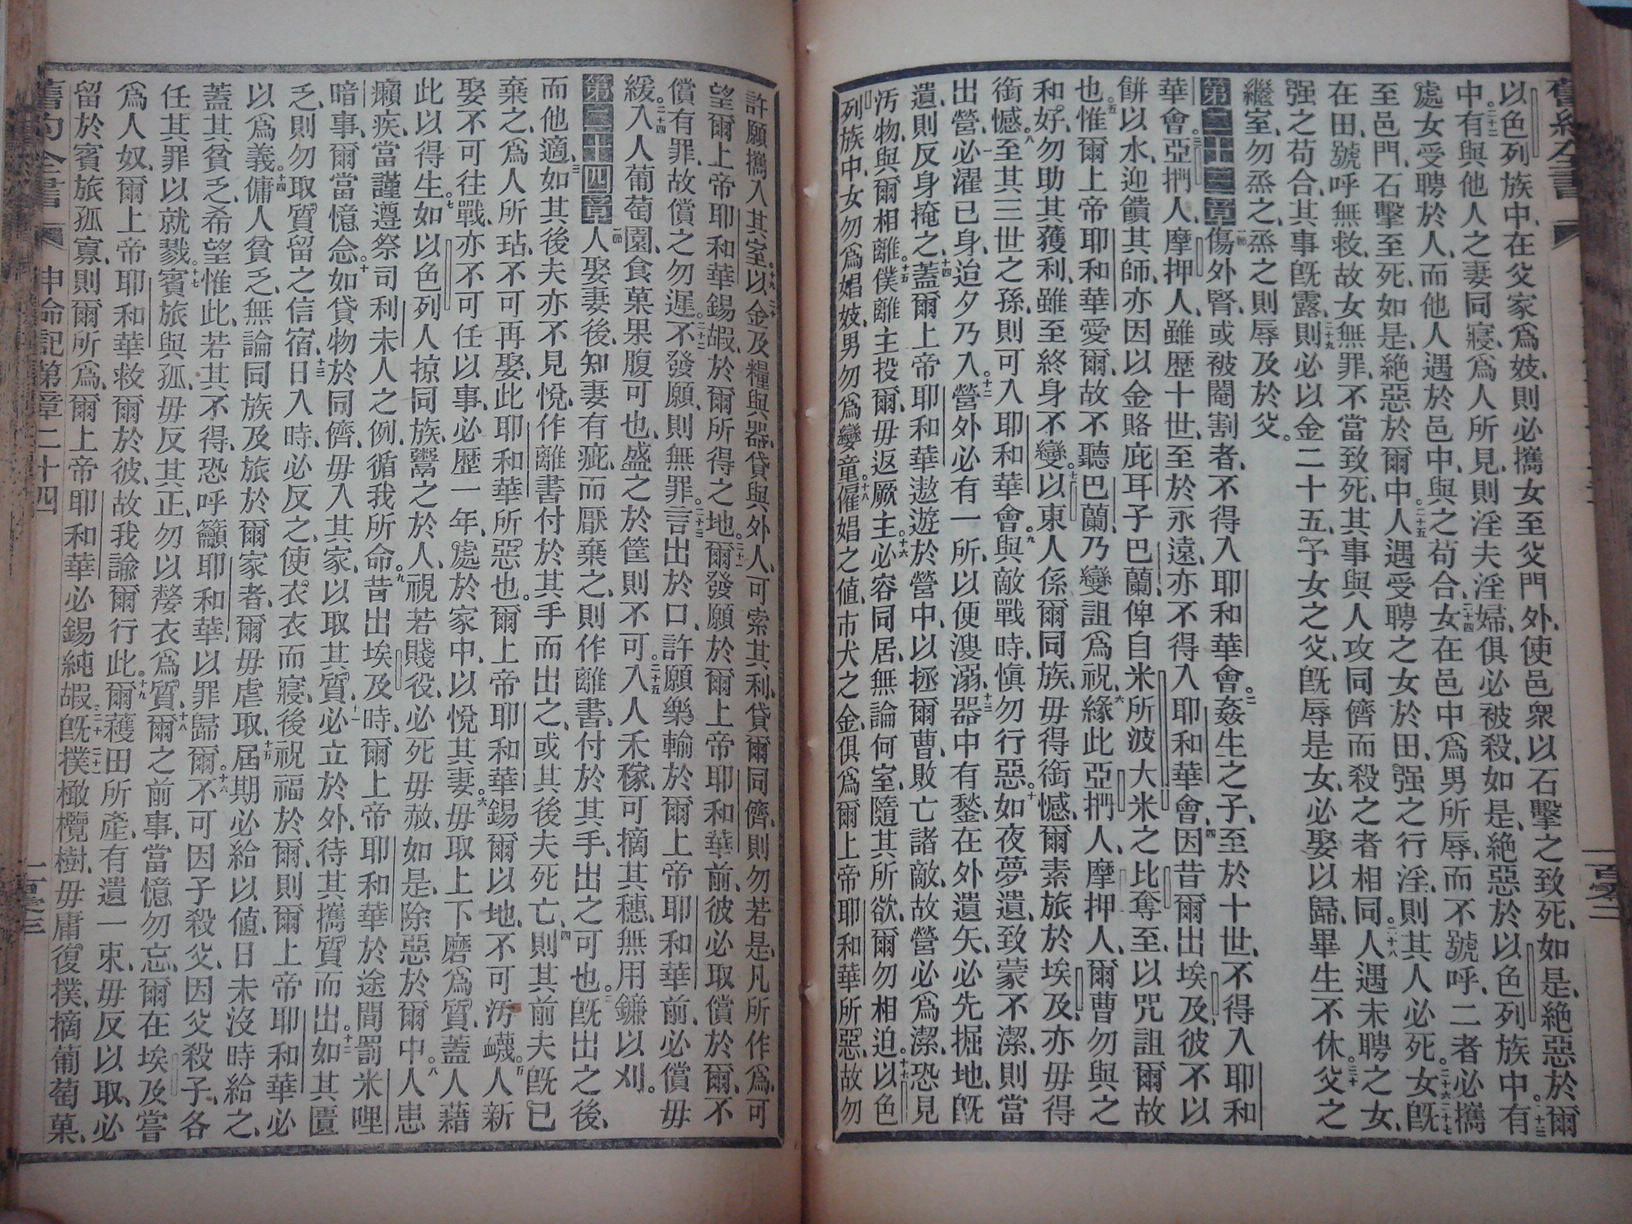 以色列族中、在父家爲妓、則必攜女至父門外、使邑衆以石擊之致死、如是絕惡於爾
中、二十二有與他人之妻同寢、爲人所見、則淫夫淫婦、俱必被殺、如是絕惡於以色列族中、二十三有
處女受聘於人、而他人遇於邑中、與之苟合、二十四女在邑中、爲男所辱、而不號呼、二者必攜
至邑門、石擊至死、如是絕惡於爾中、二十五人遇受聘之女於田、强之行淫、則其人必死、二十六女旣二十七
在田、號呼無救、故女無罪、不當致死、其事與人攻同儕而殺之者相同、二十八人遇未聘之女、
强之苟合、其事旣露、二十九則必以金二十五予女之父、旣辱是女、必娶以歸、畢生不休、三十父之
繼室、勿烝之、烝之則辱及於父。
第二十三章 一傷外腎、或被閹割者、不得入耶和華會、二姦生之子、至於十世、不得入耶和
華會、三亞捫人、摩押人、雖歷十世、至於永遠、亦不得入耶和華會、四因昔爾出埃及、彼不以
餅以水、迎饋其師、亦因以金賂庇耳子巴蘭、俾自米所波大米之比奪至、以咒詛爾、故
也、五惟爾上帝耶和華愛爾、故不聽巴蘭、乃變詛爲祝、六緣此亞捫人、摩押人、爾曹勿與之
和好、勿助其獲利、雖至終身不變、七以東人係爾同族、毋得銜憾、爾素旅於埃及、亦毋得
銜憾、八至其三世之孫、則可入耶和華會、九與敵戰時、愼勿行惡、十如夜夢遺、致蒙不潔、則當
出營、十一必濯己身、迨夕乃入、十二營外必有一所、以便溲溺、十三器中有鍫、在外遺矢、必先掘地、旣
遺、則反身掩之、十四蓋爾上帝耶和華遨遊於營中、以拯爾曹、敗亡諸敵、故營必爲潔、恐見
汚物、與爾相離、十五僕離主投爾、毋返厥主、十六必容同居、無論何室、隨其所欲、爾勿相迫、十七以色
列族中、女勿爲娼妓、男勿爲孌童、十八僱娼之値、市犬之金、俱爲爾上帝耶和華所惡、故勿
許願攜入其室、十九以金及糧與器、貸與外人、可索其利、二十貸爾同儕、則勿若是、凡所作爲、可
望爾上帝耶和華錫嘏於爾所得之地、二十一爾發願於爾上帝耶和華前、彼必取償於爾、不
償有罪、故償之勿遲、二十二不發願、則無罪、二十三言出於口、許願樂輸於爾上帝耶和華前、必償毋
緩、二十四入人葡萄園、食菓果腹可也、盛之於筐則不可、二十五入人禾稼、可摘其穗、無用鎌以刈。
第二十四章 一人娶妻後、知妻有疵而厭棄之、則作離書付於其手、出之可也、二旣出之後、
而他適、三如其後夫亦不見悅、作離書付於其手而出之、或其後夫死亡、四則其前夫旣已
棄之、爲人所玷、不可再娶、此耶和華所惡也、爾上帝耶和華錫爾以地、不可汚衊、五人新
娶、不可往戰、亦不可任以事、必歷一年、處於家中、以悅其妻、六毋取上下磨爲質、蓋人藉
此以得生、七如以色列人掠同族、鬻之於人、視若賤役、必死毋赦、如是除惡於爾中、八人患
癩疾、當謹遵祭司利未人之例、循我所命、九昔出埃及時、爾上帝耶和華於途間罰米哩
暗事、爾當憶念、十如貸物於同儕、毋入其家、以取其質、十一必立於外、待其攜質而出、十二如其匱
乏、則勿取質、留之信宿、十三日入時、必反之、使衣衣而寢、後祝福於爾、則爾上帝耶和華必
以爲義、十四傭人貧乏、無論同族及旅於爾家者、爾毋虐取、十五屆期必給以値、日未沒時給之、
蓋其貧乏、希望惟此、若其不得、恐呼籲耶和華、以罪歸爾、十六不可因子殺父、因父殺子、各
任其罪以就戮、十七賓旅與孤、毋反其正、勿以嫠衣爲質、十八爾之前事、當憶勿忘、爾在埃及、嘗
爲人奴、爾上帝耶和華救爾於彼、故我諭爾行此、十九爾穫田所產、有遺一束、毋反以取、必
留於賓旅孤寡、則爾所爲、爾上帝耶和華必錫純嘏、二十旣撲橄欖樹、毋庸復撲、二十一摘葡萄菓、
舊約全書 申命記第章二十四